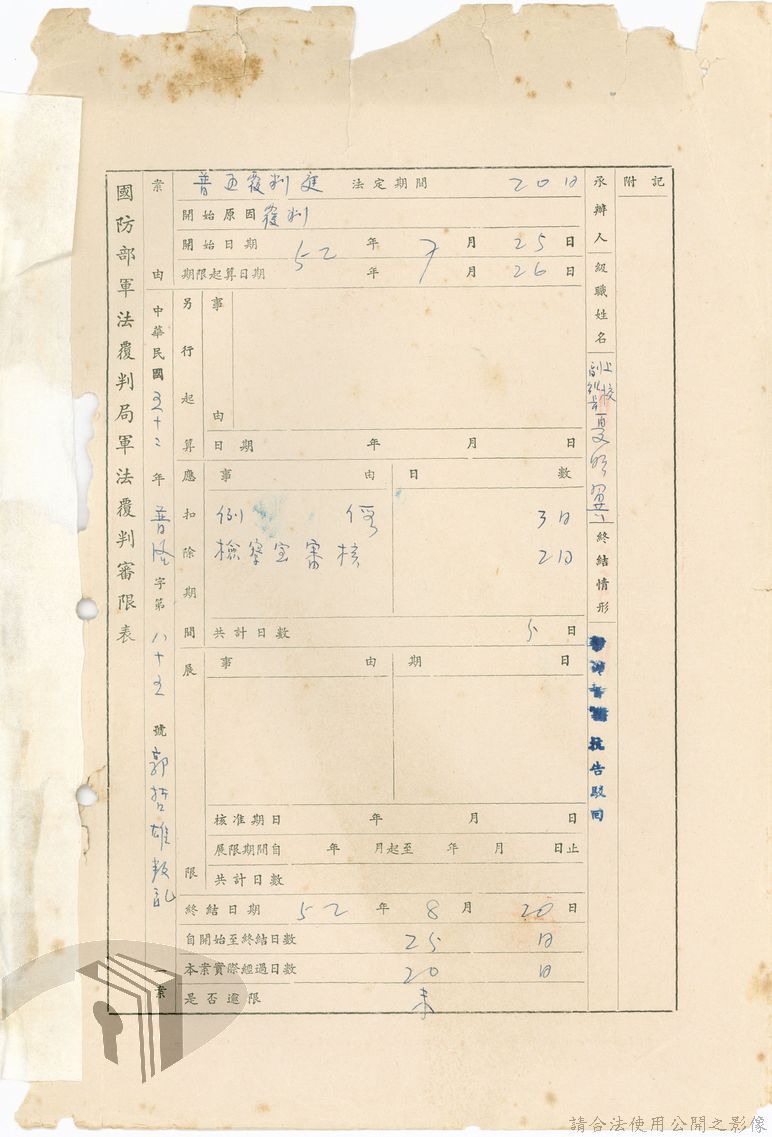 國防部軍法覆判局軍法覆判審限表
案由 中華民國五十二年普隆字第八十五號郭哲雄叛亂一案
普通覆判庭 法定期間 20日
開始原因 覆判
開始日期 52年7月25日
期限起算日期 年 月26日
另行起算
事由
日期 年 月 日
應扣除期間
事由 日數
例假 3日
檢察室審核 2日
共計日數 5日
展限
事由 期日
核准期日 年 月 日
展限期間自 年 月起至 年 月 日止
共計日數
終結日期 52年8月20日
自開始至終結日數 25日
本案實際經過日數 20日
是否違限 未
承辦人級職姓名 上校
終結情形 抗告駁回
附記
請合法使用公開之影像